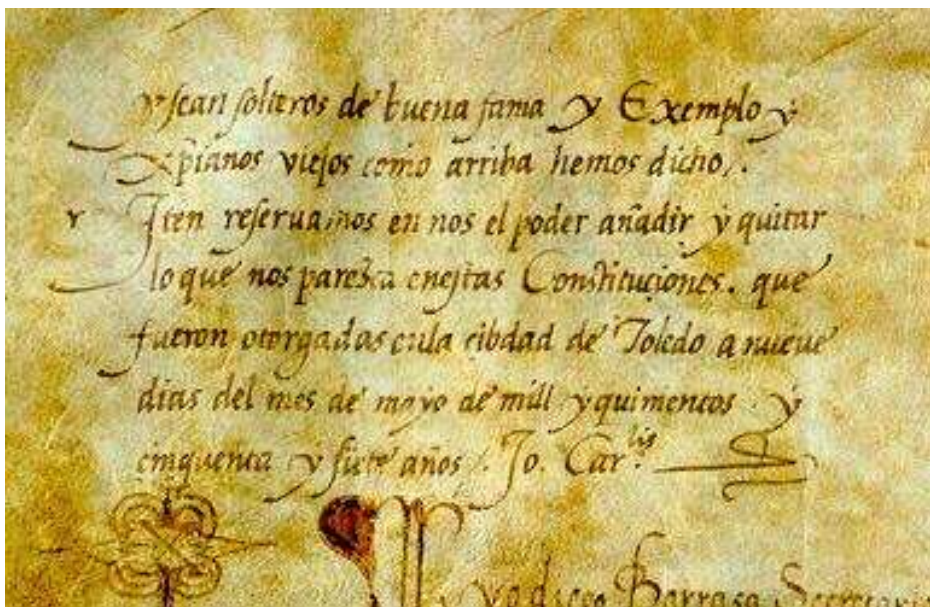 y sean solteros de buena fama y Exemplo y
xp̃ianos viejos como arriba hemos dicho.
Iten reseruamos en nos el poder añadir y quitar
lo que nos paresca enestas Constituçiones. que
fueron otorgadas enla cibdad de Toledo a nueue
dias del mes de mayo de mill y quinientos y
cinquenta y siete años. Jo. Car.lis
Yo diego Barroso Secretario